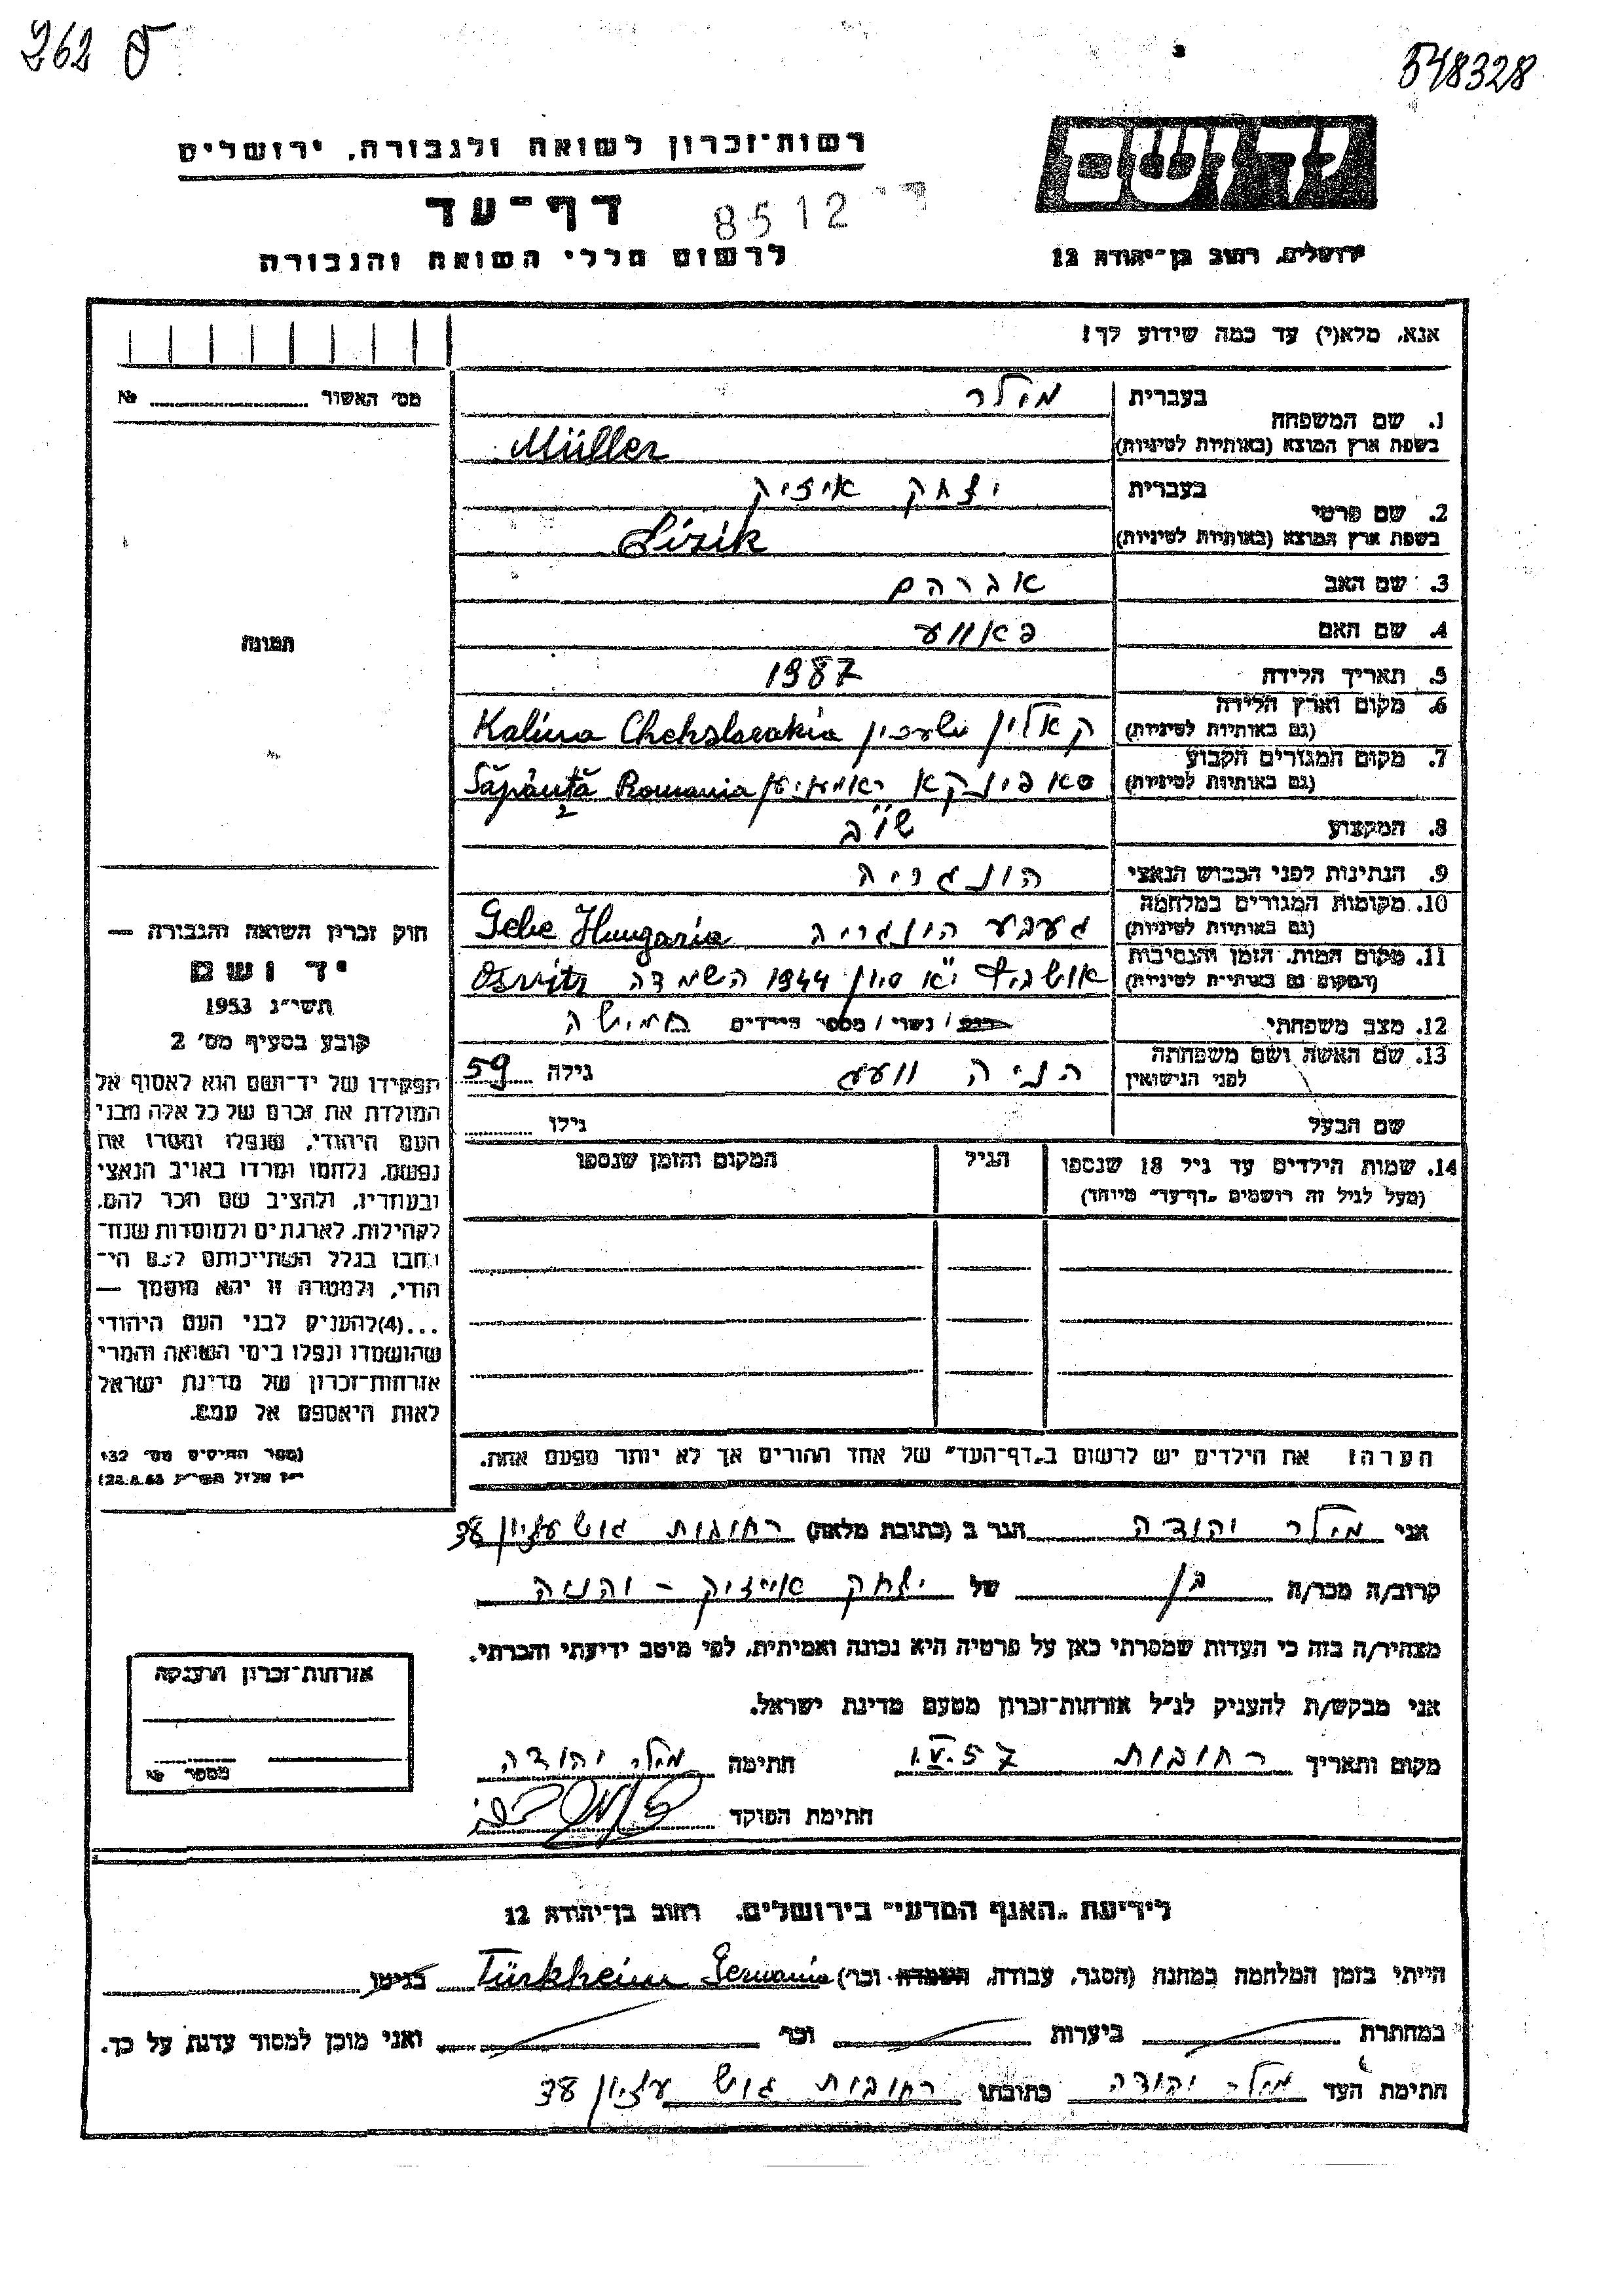 262 ס
548328
רשות־זכרון לשואה ולגבורה, ירושלים
יד ושם
דף־עד
8512
לרשום חללי השואה והגבורה
ירושלים, רחוב בן־יהודה 12
אנא, מלא(י) עד כמה שידוע לך!
מס׳ האשור № ........
1. שם המשפחה
בעברית מילר
בשפת ארץ המוצא (באותיות לטיניות) Müller
2. שם פרטי
בעברית יצחק אייזיק
בשפת ארץ המוצא (באותיות לטיניות)
3. שם האב אברהם
4. שם האם
5. תאריך הלידה
6. מקום וארץ הלידה
(גם באותיות לטיניות) Kalina Chehslavakia
7. מקום המגורים הקבוע
(גם באותיות לטיניות) Săpânţă Romania
8. המקצוע שו״ב
9. הנתינות לפני הכבוש הנאצי הונגריה
10. מקומות המגורים במלחמה
(גם באותיות לטיניות) געבע הונגריה Gebe Hungaria
11. מקום המות, הזמן והנסיבות
(המקום גם באותיות לטיניות) אושביץ י״א סיון 1944 השמדה Osvitz
12. מצב משפחתי רווק / נשוי / מספר הילדים חמישה
13. שם האשה ושם משפחתה
לפני הנישואין גילה 59
שם הבעל גילו ........
14. שמות הילדים עד גיל 18 שנספו
(מעל לגיל זה רושמים „דף־עד״ מיוחד)
הגיל
המקום והזמן שנספו
תמונה
חוק זכרון השואה והגבורה —
יד ושם
תשי״ג 1953
קובע בסעיף מס׳ 2
תפקידו של יד־ושם הוא לאסוף אל
המולדת את זכרם של כל אלה מבני
העם היהודי, שנפלו ומסרו את
נפשם, נלחמו ומרדו באויב הנאצי
ובעוזריו, ולהציב שם וזכר להם,
לקהילות, לארגונים ולמוסדות שנח־
רבו בגלל השתייכותם לעם הי־
הודי, ולמטרה זו יהא מוסמך —
...(4)להעניק לבני העם היהודי
שהושמדו ונפלו בימי השואה והמרי
אזרחות־זכרון של מדינת ישראל
לאות היאספם אל עמם.
(ספר החוקים מס׳ 132
הערה: את הילדים יש לרשום ב„דף־העד״ של אחד ההורים אך לא יותר מפעם אחת.
אני מילר יהודה הגר ב (כתובת מלאה) רחובות גוש עציון 38
קרוב/ה מכר/ה בן של יצחק אייזיק –
מצהיר/ה בזה כי העדות שמסרתי כאן על פרטיה היא נכונה ואמיתית, לפי מיטב ידיעתי והכרתי.
אני מבקש/ת להעניק לנ״ל אזרחות־זכרון מטעם מדינת ישראל.
מקום ותאריך רחובות 1.V.57 חתימה מילר יהודה
חתימת הפוקד
אזרחות־זכרון הוענקה
מספר №
לידיעת „האגף המדעי״ בירושלים, רחוב בן־יהודה 12
הייתי בזמן המלחמה במחנה (הסגר, עבודה, השמדה וכו׳) Türkheim Germania בגיטו
במחתרת ביערות וכו׳ ואני מוכן למסור עדות על כך.
חתימת העד מילר יהודה כתובתו רחובות גוש עציון 38